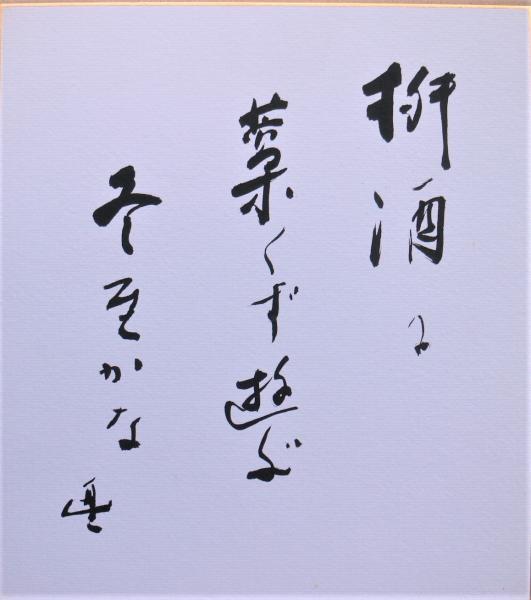 枡酒に
藁くず遊ぶ
冬至かな